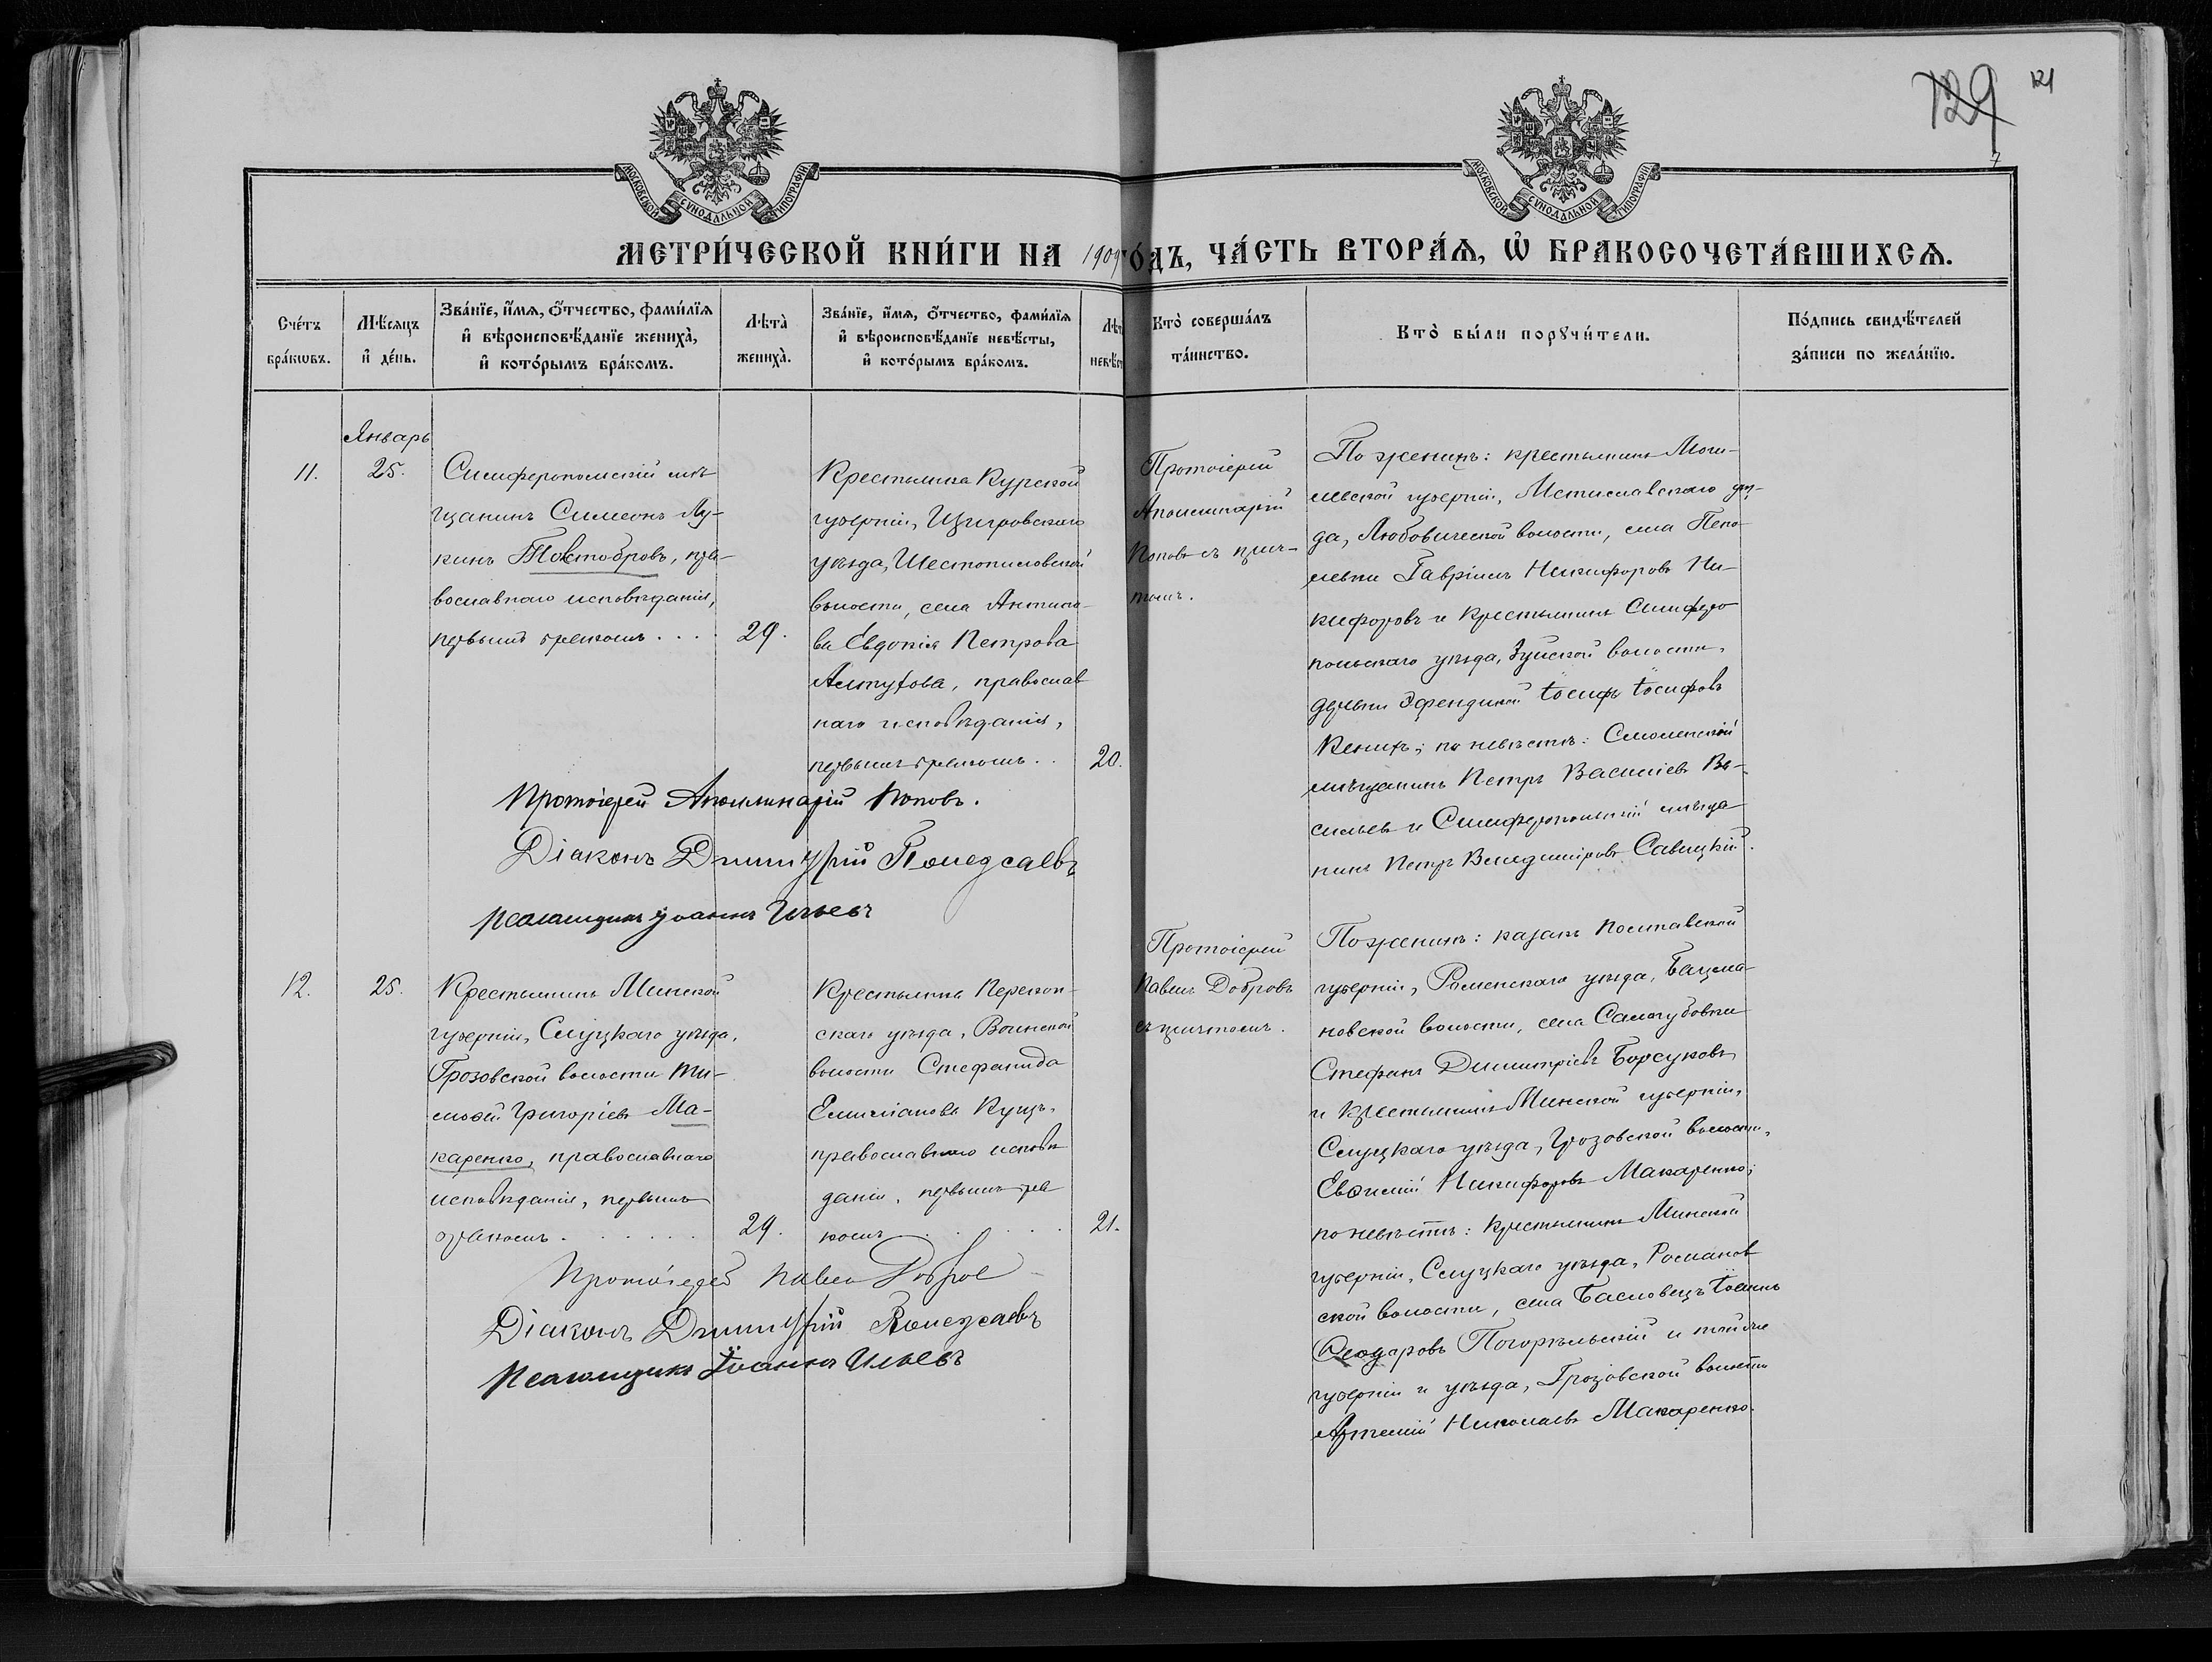 129 121
7
МОСКОВСКОЙ СУНОДАЛЬНОЙ ТИПОГРАФІИ
МОСКОВСКОЙ СУНОДАЛЬНОЙ ТИПОГРАФІИ
МЕТРИ́ЧЕСКОЙ КНИ́ГИ НА 1909 ГО́ДЪ, ЧА́СТЬ ВТОРА́Ѧ, Ѽ БРАКОСОЧЕТА́ВШИХСѦ.
Сче́тъ
бра́кωвъ.
Мѣ́сяцъ
и҆ де́нь.
Зва́нїе, и҆́мѧ, ѻ҆́тчество, фами́лїѧ
и҆ вѣроисповѣ́данїе жениха̀,
и҆ кото́рымъ бра́комъ.
Лѣта̀
жениха̀.
Зва́нїе, и҆́мѧ, ѻ҆́тчество, фами́лїѧ
и҆ вѣроисповѣ́данїе невѣ́сты,
и҆ кото́рымъ бра́комъ.
Лѣт
невѣст
Кто̀ соверша́лъ
та́инство.
Кто̀ бы́ли порꙋчи́тели.
По́дпись свидѣ́телей
за́писи по жела́нїю.
11.
Январь
25.
Симферопольскій мѣ-
щанинъ Симеонъ Лу-
кинъ Товстобровъ, пра-
вославнаго исповѣданія,
первымъ бракомъ . . . .
29.
Крестьянка Курской
губерніи, Щигровскаго
уѣзда,
волости, села Антипо-
ва Евдокія Петрова
Алтухова, православ
наго исповѣданія,
первымъ бракомъ . .
20.
Протоіерей
Аполлинарій
Поповъ съ прич-
томъ.
По женихѣ: крестьянинъ Моги-
левской губерніи, Мстиславскаго уѣз-
да, Любовической волости, села
Гавріилъ Никифоровъ Ни-
кифоровъ и крестьянинъ Симферо
польскаго уѣзда, Зуйской волости,
деревни Эфендикой Іосифъ Іосифовъ
по невѣстѣ: Смоленскій
мѣщанинъ Петръ Василіевъ Ва-
сильевъ и Симферопольскій мѣща
нинъ Петръ Владиміровъ Савицкій.
Протоіерей Аполлинарій Поповъ.
Діаконъ Димитрій
Псаломщикъ Іоаннъ Ильевъ
12.
25.
Крестьянинъ Минской
губерніи, Слуцкаго уѣзда,
Грозовской волости Ти-
моѳей Григоріевъ Ма-
каренко, православнаго
исповѣданія, первымъ
бракомъ . . . . . .
29.
Крестьянка Перекоп-
скаго уѣзда, Воинской
волости Стефанида
Емиліанова Куцъ,
православнаго исповѣ
данія, первымъ бра
комъ . . . . .
21.
Протоіерей
Павелъ Добровъ
съ причтомъ.
По женихѣ: казакъ Полтавской
губерніи, Роменскаго уѣзда, Бацма-
новской волости, села Салогубовки
Стефанъ Димитріевъ Борсуковъ
и крестьянинъ Минской губерніи,
Слуцкаго уѣзда, Грозовской волости,
Евѳимій Никифоровъ Макаренко;
по невѣстѣ: крестьянинъ Минской
губерніи, Слуцкаго уѣзда, Романов
ской волости, села Басловецъ Іоаннъ
Ѳеодоровъ Погорѣльскій и той же
губерніи и уѣзда, Грозовской волости
Артемій Николаевъ Макаренко.
Протоіерей Павелъ Добров
Діаконъ Димитрій
Псаломщикъ Іоаннъ Ильевъ